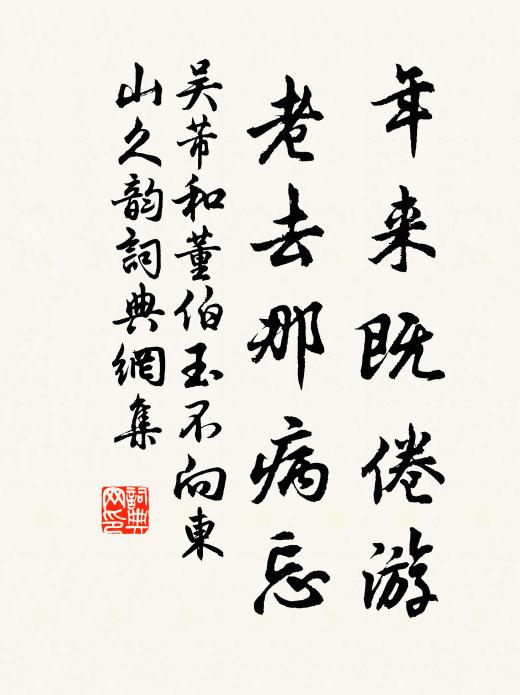 年来既倦游
老去那病忘
吴芾和董伯玉不向東
山久韵詞典網集
詞典网印